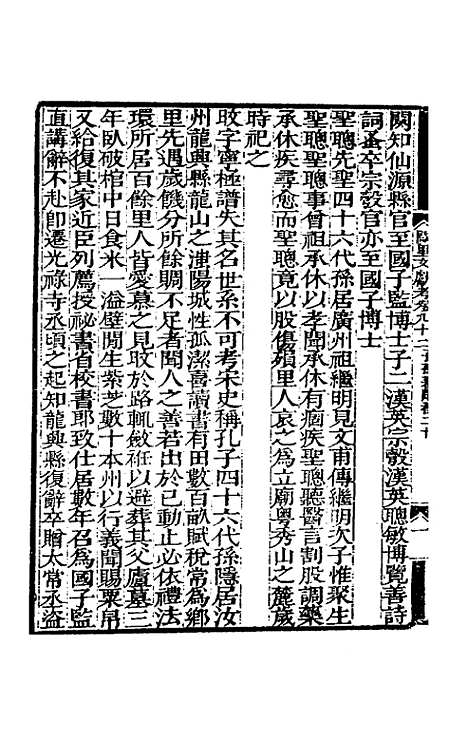 闕知仙源縣官至國子監博士子二漢英宗殼漢英聰敏博覽善詩
詞蚤卒宗殼官亦至國子博士
聖聰先聖四十六代孫居廣州祖繼明見文甫傳繼明次子惟聚生
聖聰聖聰事曾祖承休以孝聞承休有痼疾聖聰聽醫言割股調藥
承休疾尋愈而聖聰竟以股傷殞里人哀之為立廟粵秀山之麓歲
時祀之
旼字寧極譜失其名世系不可考宋史稱孔子四十六代孫隱居汝
州龍興縣龍山之滍陽城性孤潔喜讀書有田數百畝賦稅常為鄉
里先遇歲饑分所餘賙不足者聞人之善若出於已動止必依禮法
環所居百餘里人皆愛慕之見旼於路輒斂袵以避葬其父廬墓三
年臥破棺中日食米一溢壁間生紫芝數十本州以行義聞賜粟帛
又給復其家近臣列薦授祕書省校書郎致仕居數年召為國子監
直講辭不赴卽遷光祿寺丞頃之起知龍興縣復辭卒贈太常丞盜